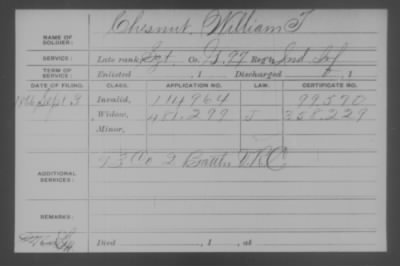 Chesnut, William T
NAME OF SOLDIER:
SERVICE: Late rank, Sgt. Co. G, 97 Reg't Ind. Inf
TERM OF SERVICE: Enlisted , 1 Discharged , 1
DATE OF FILING. CLASS. APPLICATION NO. LAW. CERTIFICATE NO.
Sept 3 Invalid, 114964 99590
Widow, 481,299 J 358,229
Minor,
ADDITIONAL SERVICES: Co 2 Batt'n V.R.C
REMARKS:
Died , 1 , at